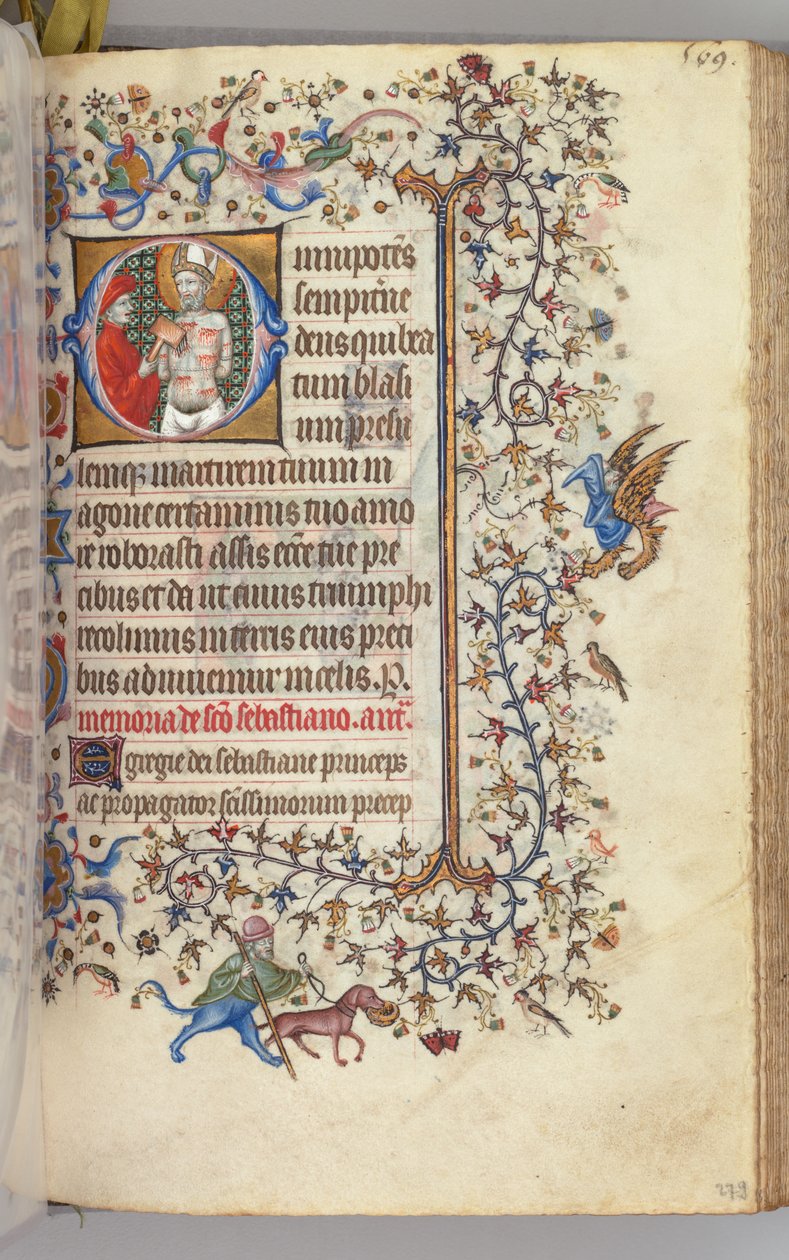 569.
Omnipotēs
sempitne
deus qui bea
tum blasi
um presu
lemqȝ martirem tuum in
agone certaminis tuo amo
re roborasti assis ecce tue pre
cibus et da ut cuius triumphi
recolimus in terris eius preci
bus adiuuemur in celis. P.
memoria de sco sebastiano. ant.
Egregie dei sebastiane princeps
ac propagator scissimorum precep
279